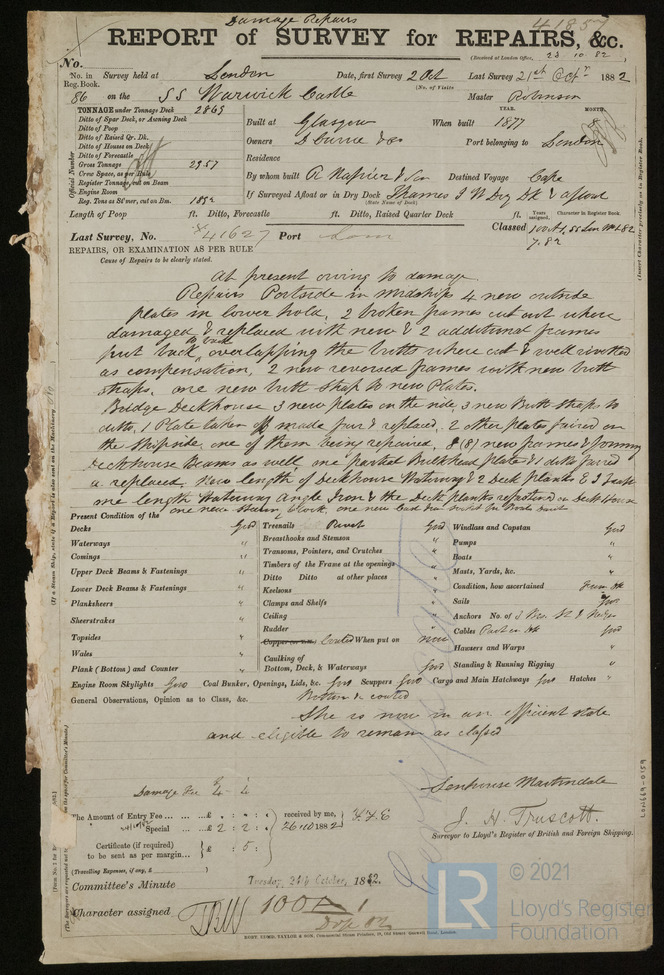 Damage Repairs
41857
REPORT of SURVEY for REPAIRS, &c.
(Received at London Office, 23 10 82)
No.
No. in Reg. Book. Survey held at London Date, first Survey 2 Oct Last Survey 21st Octr 1882
(No. of Visits
86 on the SS Warwick Castle Master Robinson
TONNAGE under Tonnage Deck 2865
Ditto of Spar Deck, or Awning Deck
Ditto of Poop
Ditto of Raised Qr. Dk.
Ditto of Houses on Deck
Ditto of Forecastle
Gross Tonnage 2957
Crew Space, as per Rule
Register Tonnage, cut on Beam
Engine Room
Reg. Tons as St'mer, cut on Bm. 1892
Official Number
YEAR. MONTH.
Built at Glasgow When built 1877 8
Owners D Currie & Co Port belonging to London
Residence
By whom built R Napier & Son Destined Voyage Cape
If Surveyed Afloat or in Dry Dock Thames I W Dry Dk & afloat
(State Name of Dock)
Length of Poop ft. Ditto, Forecastle ft. Ditto, Raised Quarter Deck ft.
Years assigned. Character in Register Book.
Last Survey, No. 41627 Port Lon Classed 100A1, SS Lon No1.82
7.82
(Insert Character precisely as in Register Book.
REPAIRS, OR EXAMINATION AS PER RULE
Cause of Repairs to be clearly stated.
At present owing to damage
Repairs Portside in midships 4 new outside
plates in lower hold, 2 broken frames cut out where
damaged & replaced with new & 2 additional frames
put back to back overlapping the butts where cut & well rivetted
as compensation, 2 new reversed frames with new butt
straps, one new butt strap to new Plates.
Bridge Deckhouse 3 new plates on the side, 3 new Butt straps to
ditto, 1 Plate taken off made fair & replaced, 2 other plates faired on
the Shipside, one of them being repaired, 8 (8) new frames & forming
Deckhouse Beams as well, one partial Bulkhead plate & 1 ditto faired
& replaced. New length of Deckhouse Waterway & 2 Deck planks &
length Waterway Angle Iron & the Deck planks refastened on Deck House
Present Condition of the
Decks Good
Waterways "
Comings "
Upper Deck Beams & Fastenings "
Lower Deck Beams & Fastenings "
Planksheers "
Sheerstrakes "
Topsides "
Wales "
Plank (Bottom) and Counter "
Treenails Rivet Good
Breasthooks and Stemson "
Transoms, Pointers, and Crutches "
Timbers of the Frame at the openings "
Ditto Ditto at other places "
Keelsons "
Clamps and Shelfs "
Ceiling "
Rudder "
Coated When put on now
Caulking of Bottom, Deck, & Waterways Good
Windlass and Capstan Good
Pumps "
Boats "
Masts, Yards, &c. "
Condition, how ascertained From Dk
Sails Good
Anchors No. of 3
Cables Part on Dk Good
Hawsers and Warps "
Standing & Running Rigging "
Engine Room Skylights Good Coal Bunker, Openings, Lids, &c. Good Scuppers Good Cargo and Main Hatchways Good Hatches "
General Observations, Opinion as to Class, &c. Bottom re coated
She is now in an efficient state
and eligible to remain as classed
Damage Fee £4 4
The Amount of Entry Fee ... £ : : received by me,
Special ... £ 2 : 2 : 26.10.1882
Certificate (if required) to be sent as per margin... £ : 5 :
(Travelling Expenses, if any, £ )
Senhouse Martindale
J. H. Truscott.
Surveyor to Lloyd's Register of British and Foreign Shipping.
Committee's Minute Tuesday, 24th October, 1882.
Character assigned 100A1
© 2021
LR
Lloyd's Register
Foundation